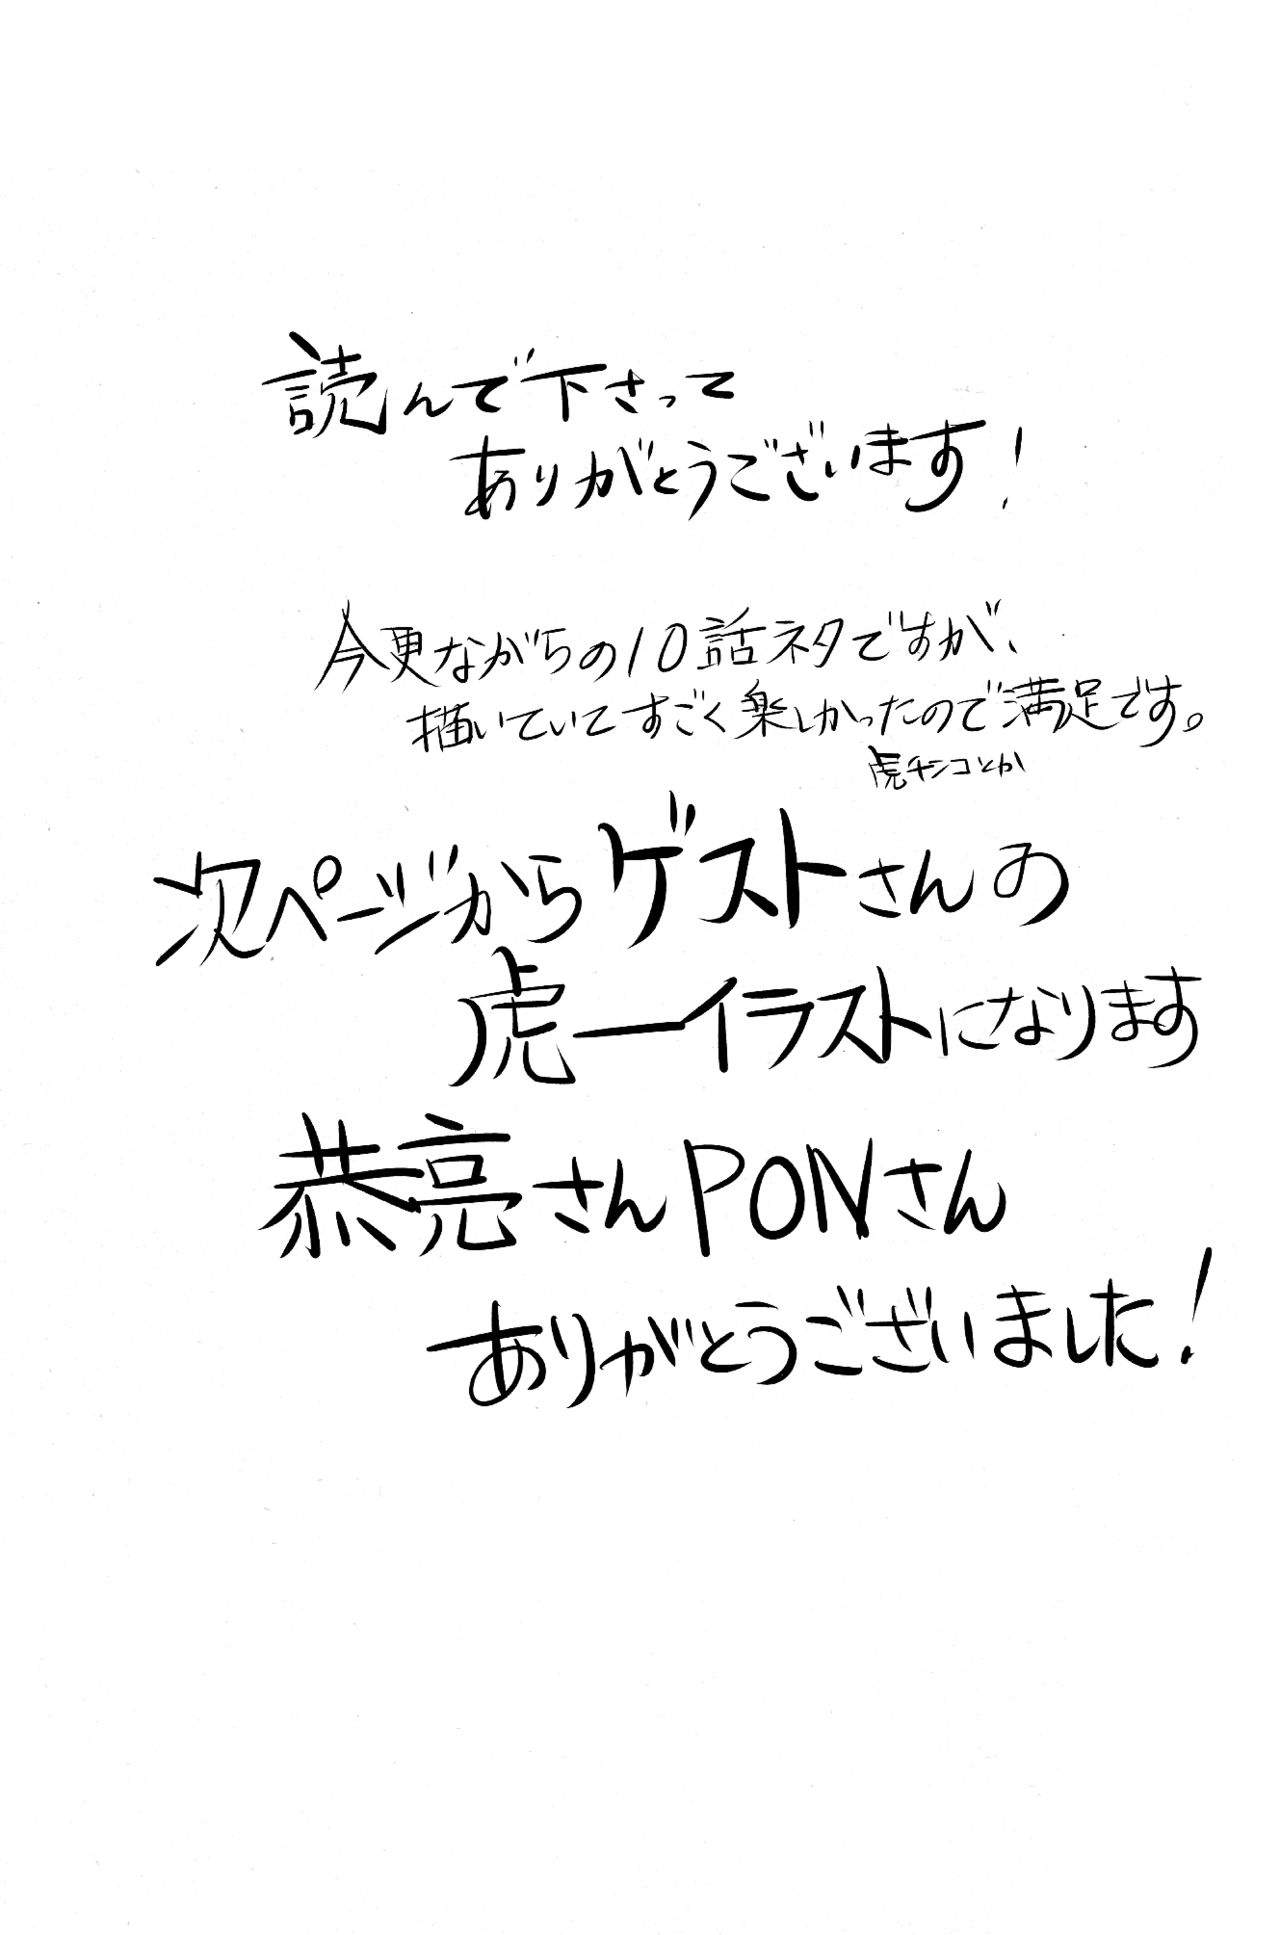 読んで下さって
ありがとうございます!
今更ながらの10話ネタですが、
描いていてすごく楽しかったので満足です。
虎チンコとか
次ページからゲストさんの
虎一イラストになります
恭亮さんPONさん
ありがとうございました!